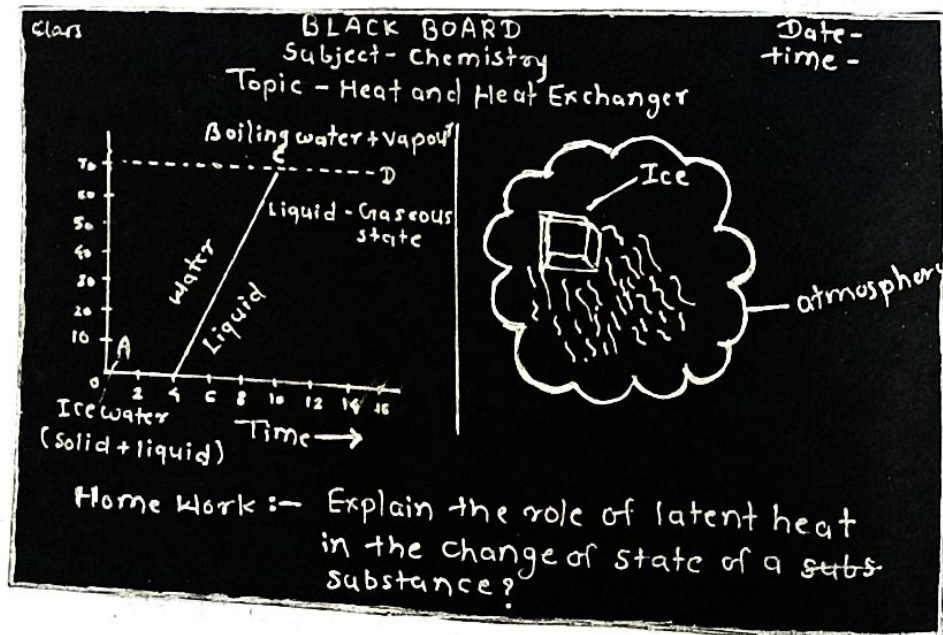 Class
BLACK BOARD
Date-
Subject- Chemistry
time -
Topic - Heat and Heat Exchanger
Boiling water + vapour
C
70
D
60
50
40
30
20
10
0
Liquid - Gaseous
state
Water
Liquid
A
2 4 6 8 10 12 14 16
Ice water
(solid + liquid)
Time
Ice
atmosphere
Home Work :- Explain the role of latent heat
in the change of state of a subs
substance?